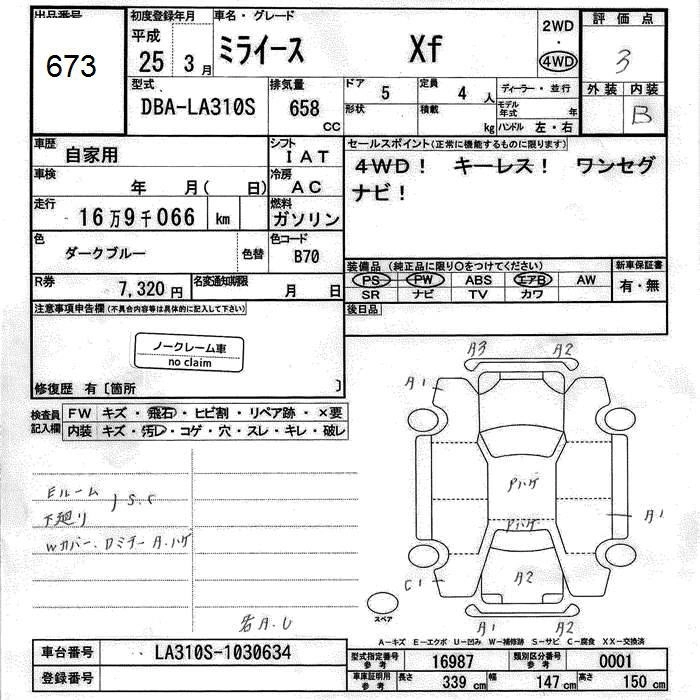 出品番号
673
初度登録年月
平成
25 3月
車名・グレード
ミライース Xf
2WD
・
4WD
評価点
3
外装 内装
B
型式
DBA-LA310S
排気量
658
cc
ドア
5
形状
定員
4 人
積載
kg
ディーラー・並行
モデル年式 年
ハンドル 左・右
車歴
自家用
シフト
IAT
車検
年 月( 日)
冷房
AC
走行
16万9千066 km
燃料
ガソリン
色
ダークブルー
色替
色コード
B70
R券
7,320円
名変通知期限
月 日
セールスポイント(正常に機能するものに限ります)
4WD! キーレス! ワンセグ
ナビ!
装備品 (純正品に限り○をつけてください)
PS PW ABS エアB AW
SR ナビ TV カワ
新車保証書
有・無
後日品
注意事項申告欄(不具合内容等は具体的に記入して下さい)
ノークレーム車
no claim
修復歴 有〔箇所 〕
検査員
記入欄
FW キズ・飛石・ヒビ割・リペア跡・×要
内装 キズ・汚レ・コゲ・穴・スレ・キレ・破レ
Eルーム
下廻り
S.C
Wカバー、Dミラー A.ハゲ
若A.U
A3 A2
A1
Pハゲ
A1
Pハゲ
C1
A2
A1 A2
スペア
A-キズ E-エクボ U-凹み W-補修跡 S-サビ C-腐食 XX-交換済
車台番号
LA310S-1030634
登録番号
型式指定番号
参考
16987
類別区分番号
参考
0001
車庫証明用
参考
長さ
339 cm
幅
147 cm
高さ
150 cm